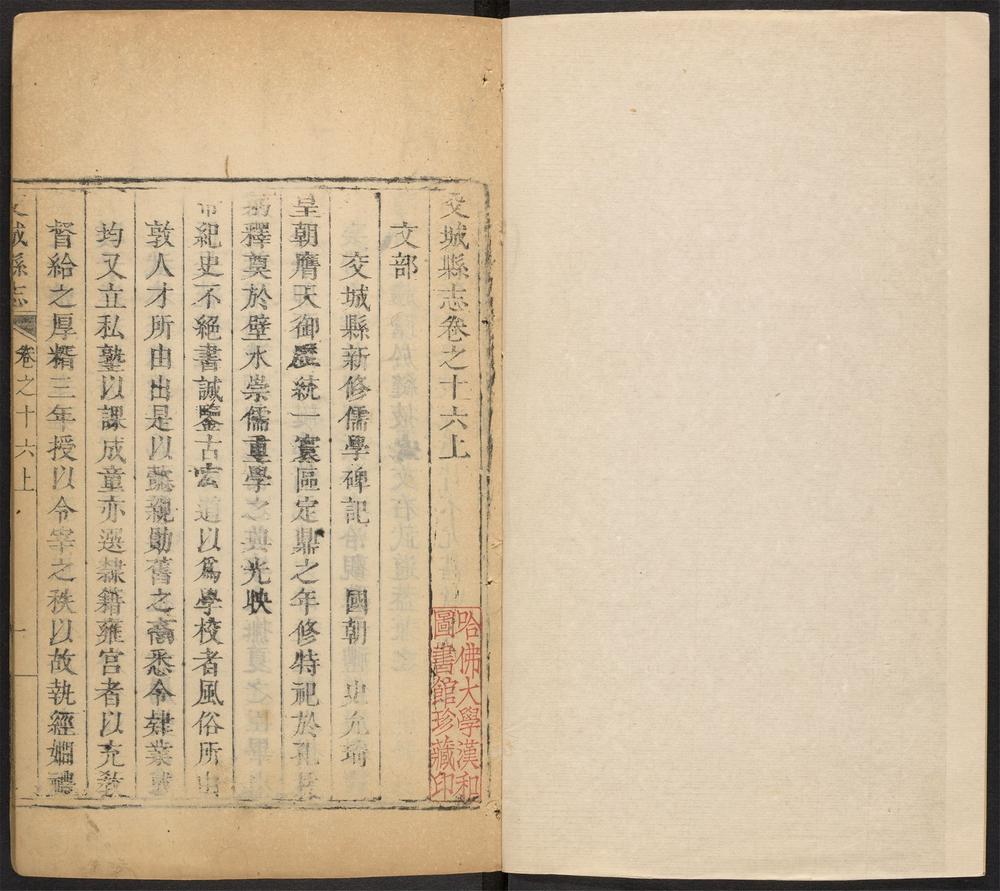 交城縣志卷之十六上
文部
交城縣新修儒學碑記 國朝 史允琦
皇朝膺天御歷統一寰區定鼎之年修特祀於孔
釋奠於壁水崇儒重學之典光映
紀史不絕書誠鑒古宏道以爲學校者風俗所由
敦人才所由出是以懿親勛舊之裔悉令肄業成
均又立私塾以課成童亦選隸籍雍宮者以充教
督給之厚糈三年授以令宰之秩以故執經嫺禮
城縣志 卷之十六上 一
哈佛大學漢和
圖書館珍藏印